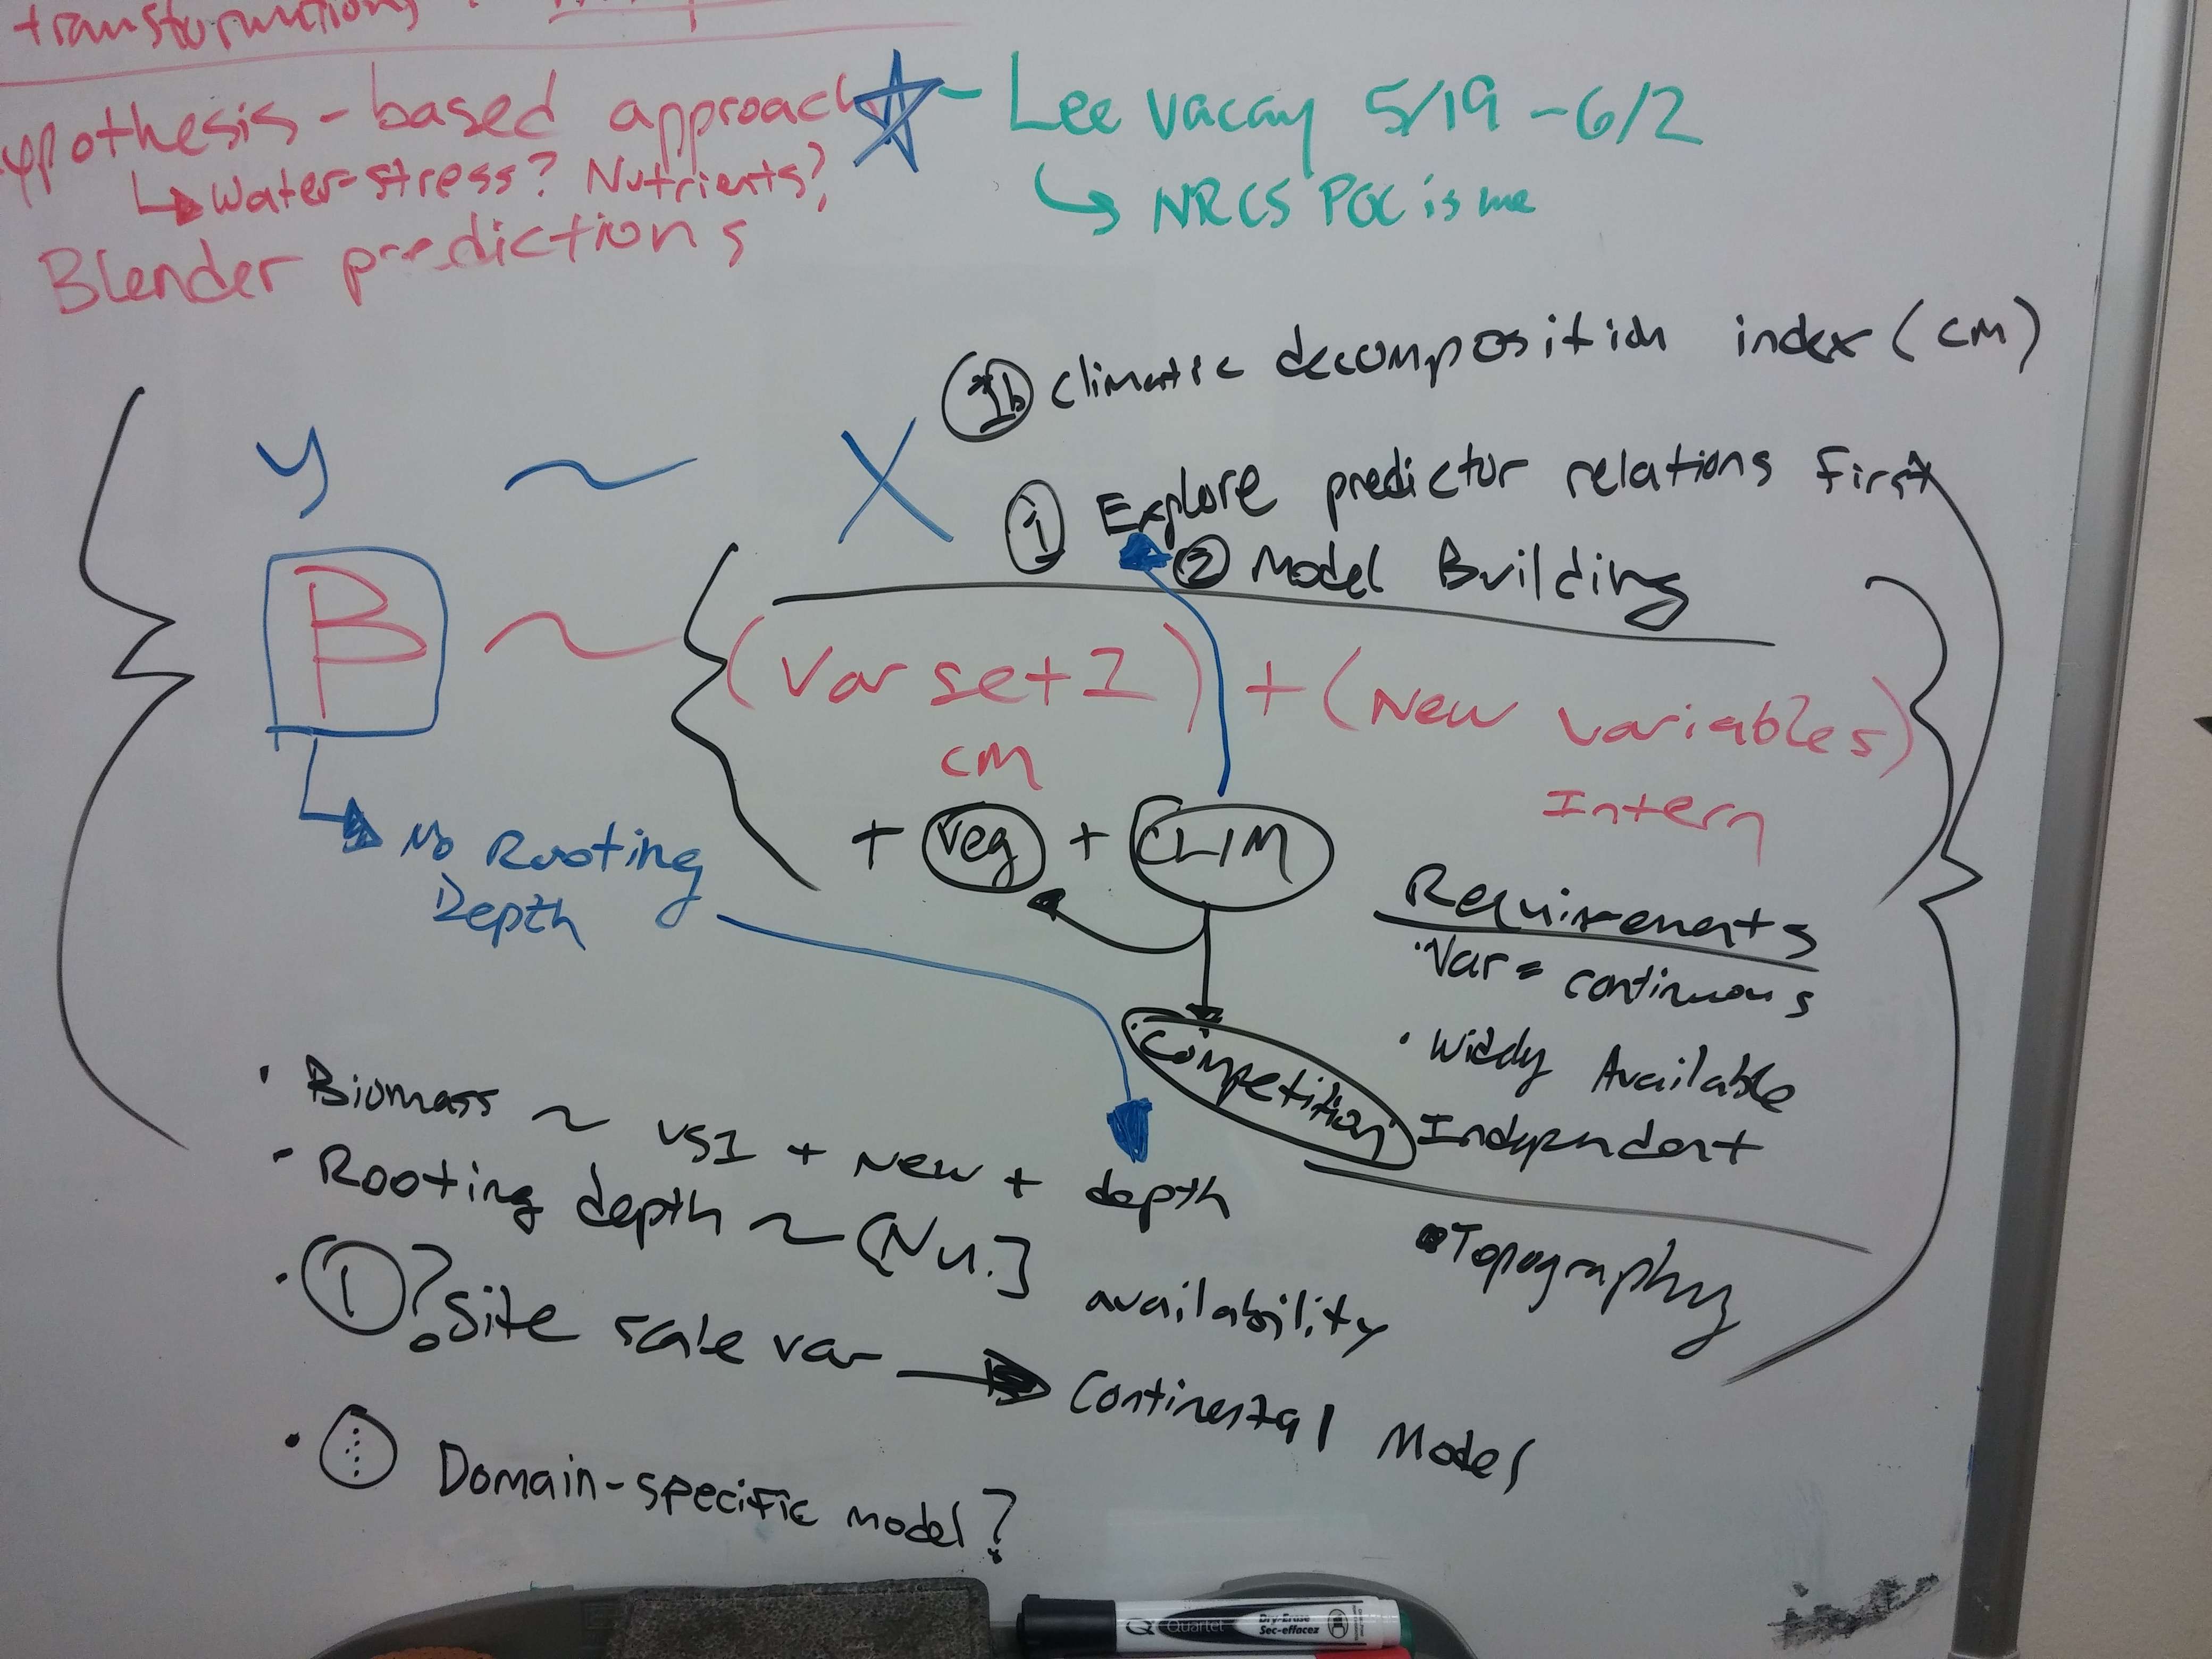 transformations
ypothesis-based approach
Water-stress? Nutrients?
Blender predictions
- Lee vacay 5/19 - 6/2
NRCS POC is me
1b Climatic decomposition index (CM)
y ~ X
1 Explore predictor relations first
2 Model Building
B ~ (Var set 1) + (New variables)
CM
Intern
+ Veg + CLIM
No Rooting
Depth
Requirements
· Var = continuous
· Widely Available
Independent
Competition
· Topography
· Biomass ~ VS1 + New + depth
- Rooting depth ~ [Nu.] availability
· 1 ? Site scale var → Continental Model
· Domain-specific model?
Q Quartet
Dry-Erase
Sec-effacez